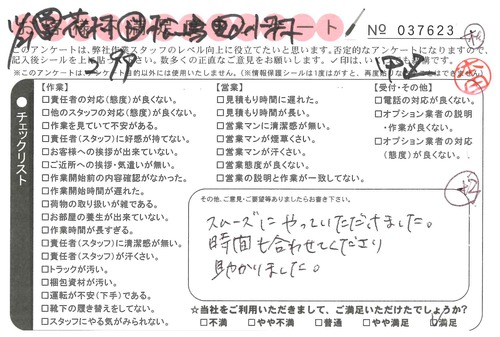 ート
No 037623
このアンケートは、弊社作業スタッフのレベル向上に役立てたいと思います。否定的なアンケートになりますので、
記入後シールを上に貼って下さい。数多くの正直なご意見をお願いします。✓印は、い
※このアンケートは アンケート目的以外には使用いたしません。(※情報保護シールは1度はがすと、再度貼り
チェックリスト
【作業】
□責任者の対応(態度)が良くない。
□他のスタッフの対応(態度)が良くない。
□作業を見ていて不安がある。
□責任者(スタッフ)に好感が持てない。
□お客様への挨拶が出来ていない。
□ご近所への挨拶・気遣いが無い。
□作業開始前の内容確認がなかった。
□作業開始時間が遅れた。
□荷物の取り扱いが雑である。
□お部屋の養生が出来ていない。
□作業時間が長すぎる。
□責任者(スタッフ)に清潔感が無い。
□責任者(スタッフ)が汗くさい。
□トラックが汚い。
□梱包資材が汚い。
□運転が不安(下手)である。
□靴下の履き替えをしてない。
□スタッフにやる気がみられない。
【営業】
□見積もり時間に遅れた。
□見積もり時間が長い。
□営業マンに清潔感が無い。
□営業マンが煙草くさい。
□営業マンが汗くさい。
□営業態度が良くない。
□営業の説明と作業が一致してない。
【受付・その他】
□電話の対応が良くない。
□オプション業者の説明
・作業が良くない。
□オプション業者の対応
が良くない。
その他、ご意見・ご要望等ありましたらお書き下さい。
スムーズにやっていただけました。
時間も合わせてくださり
助かりました。
☆当社をご利用いただきまして、ご満足いただけたでしょうか?
□不満 □やや不満 □普通 □やや満足 ☑満足